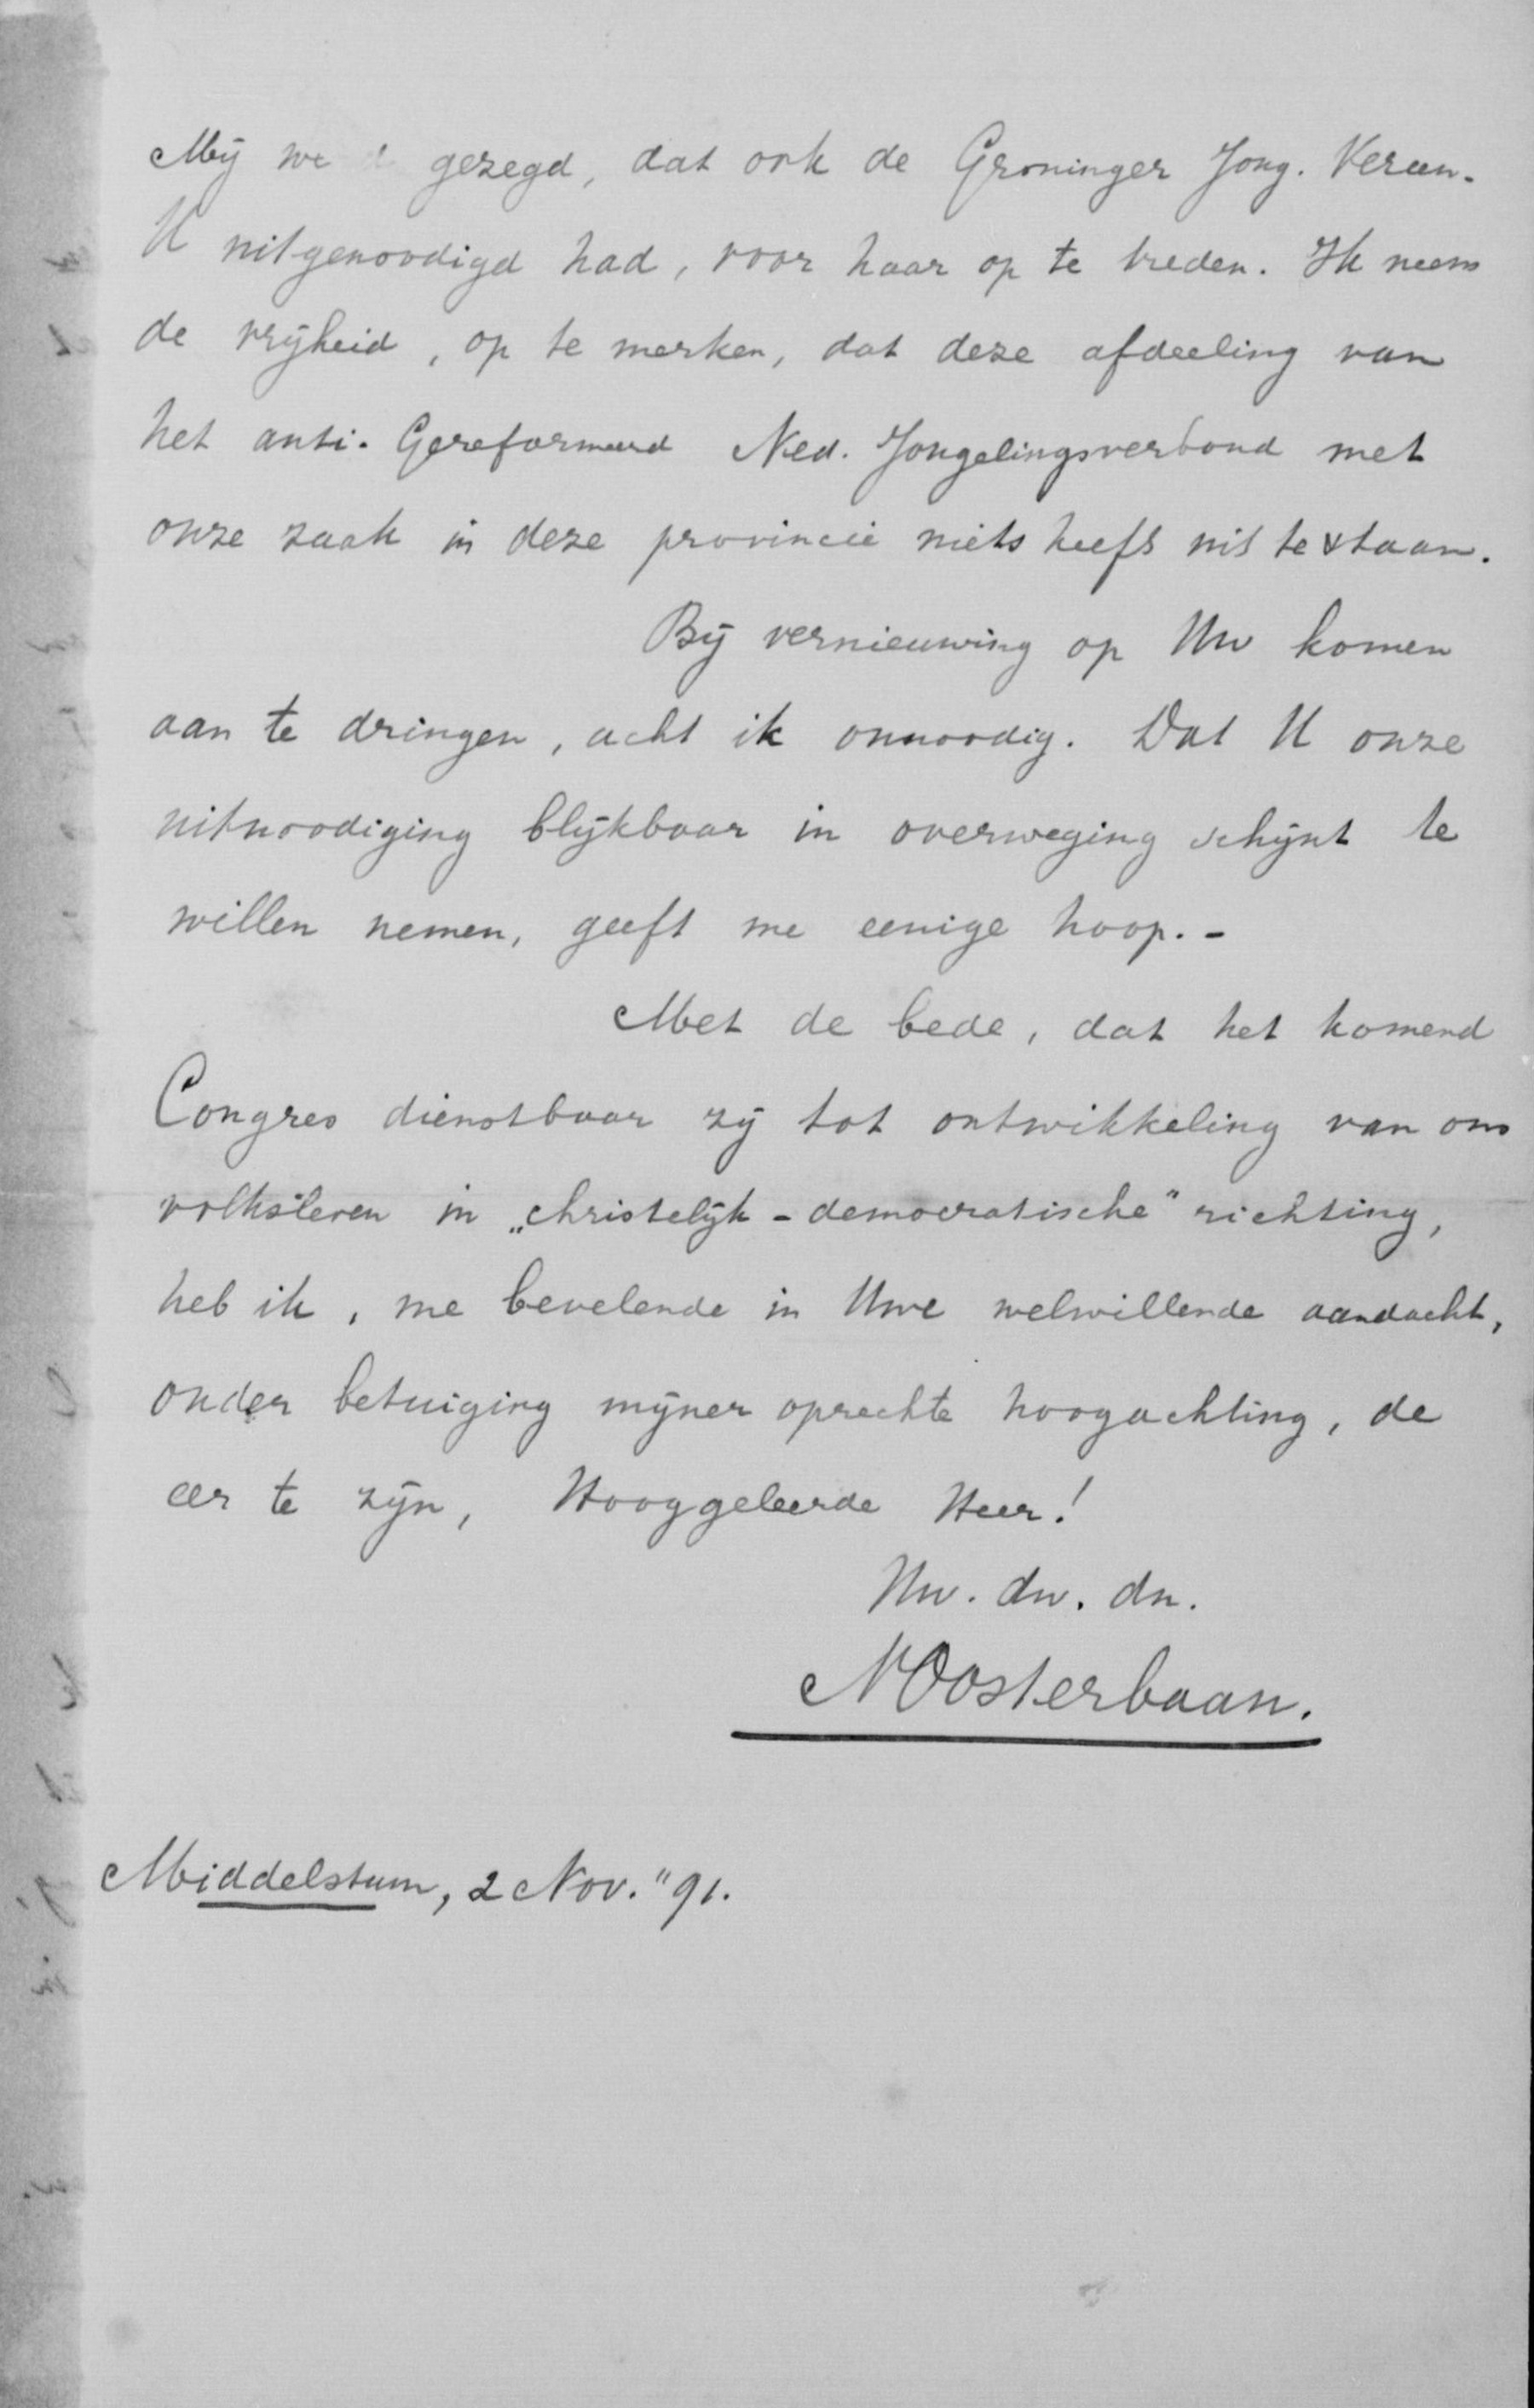 Mij we d gezegd, dat ook de Groninger Jong. Vereen.
U uitgenoodigd had, voor haar op te treden. Ik neem
de vrijheid, op te merken, dat deze afdeeling van
het anti-Gereformeerd Ned. Jongelingsverbond met
onze zaak in deze provincie niets heeft uit te staan.
Bij vernieuwing op Uw komen
aan te dringen, acht ik onnoodig. Dat U onze
uitnoodiging blijkbaar in overweging schijnt te
willen nemen, geeft me eenige hoop. -
Met de bede, dat het komend
Congres dienstbaar zij tot ontwikkeling van ons
volksleven in „christelijk-democratische" richting,
heb ik, me bevelende in Uwe welwillende aandacht,
onder betuiging mijner oprechte hoogachting, de
eer te zijn, Hooggeleerde Heer!
Uw. dw. dn.
NOosterbaan.
Middelstum, 2 Nov. "91.